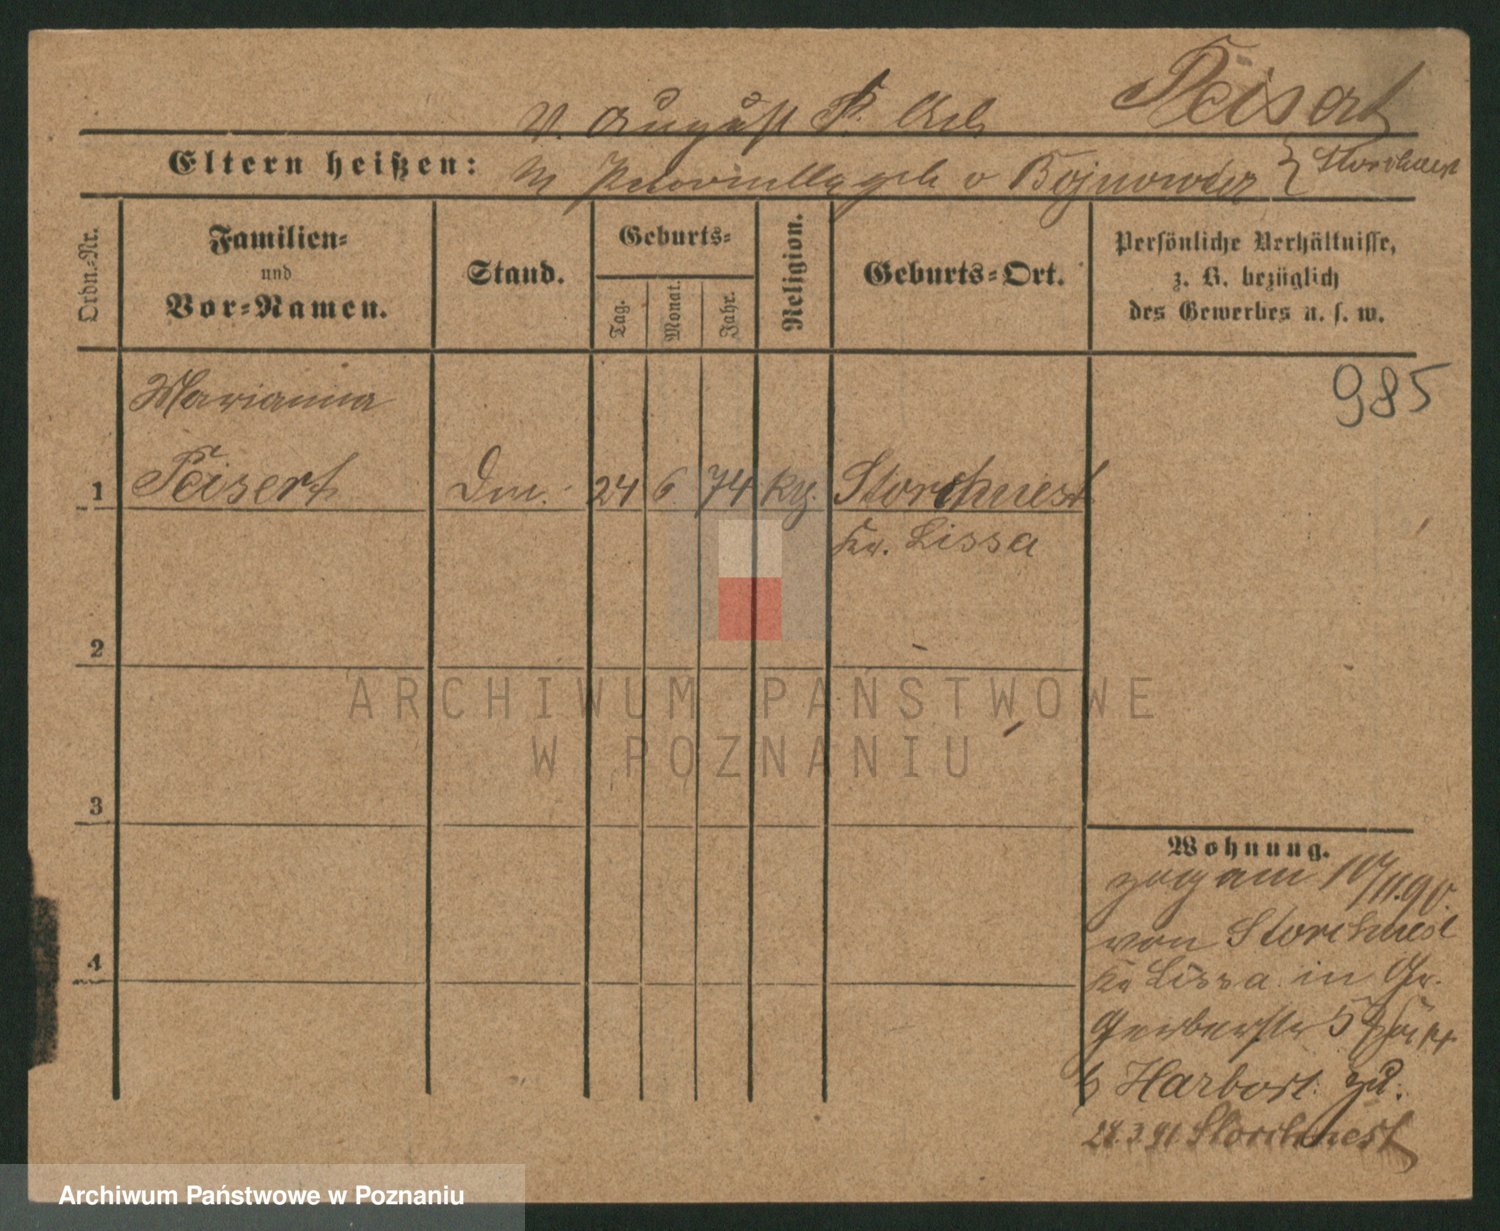 Peisert
V. August P. Arb
Eltern heißen:
M geb v Bojnowska } Storchnest
Ordn.-Nr.
Familien-
und
Vor-Namen.
Stand.
Geburts-
Tag.
Monat.
Jahr.
Religion.
Geburts-Ort.
Persönliche Verhältnisse,
z. B. bezüglich
des Gewerbes u. s. w.
985
Marianna
1 Peisert
24 6 74 Storchnest
Kr. Lissa
2
3
4
Wohnung.
zog am 10/11.90.
von Storchnest
Kr Lissa in Gr.
Gerberstr 5
b Harbort zu.
28.3.91 Storchnest
ARCHIWUM PAŃSTWOWE
W POZNANIU
Archiwum Państwowe w Poznaniu